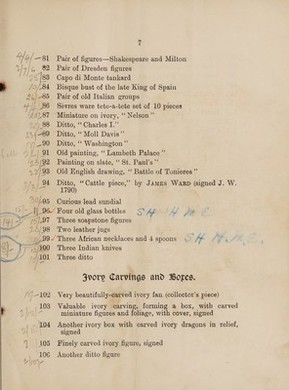 7
81 Pair of figures—Shakespeare and Milton
82 Pair of Dresden figures
83 Capo di Monte tankard
84 Bisque bust of the late King of Spain
85 Pair of old Italian groups
86 Sèvres ware tete-a-tete set of 10 pieces
87 Miniature on ivory, "Nelson"
88 Ditto, "Charles I."
89 Ditto, "Moll Davis"
90 Ditto, "Washington"
91 Old painting, "Lambeth Palace"
92 Painting on slate, "St. Paul's"
93 Old English drawing, "Battle of Tonieres"
94 Ditto, "Cattle piece," by JAMES WARD (signed J. W.
1790)
95 Curious lead sundial
96 Four old glass bottles SH H.M.E.
97 Three soapstone figures
98 Two leather jugs
99 Three African necklaces and 4 spoons SH H.M.E.
100 Three Indian knives
101 Three ditto
Ivory Carvings and Boxes.
102 Very beautifully-carved ivory fan (collector's piece)
103 Valuable ivory carving, forming a box, with carved
miniature figures and foliage, with cover, signed
104 Another ivory box with carved ivory dragons in relief,
signed
105 Finely carved ivory figure, signed
106 Another ditto figure